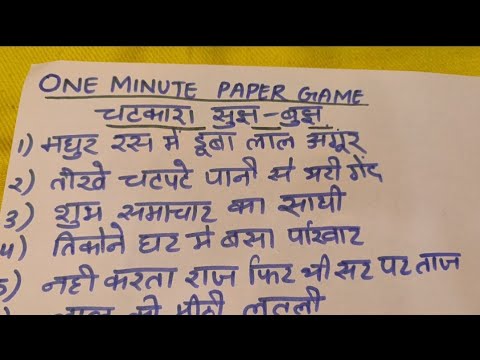 ONE MINUTE PAPER GAME
चटकारा सुझ-बुझ
1) मधुर रस में डूबा लाल अंगूर
2) तीखे चटपटे पानी से भरी गेंद
3) शुभ समाचार का साथी
4) तिकोने घर में बसा परिवार
5) नही करता राज फिर भी सर पर ताज